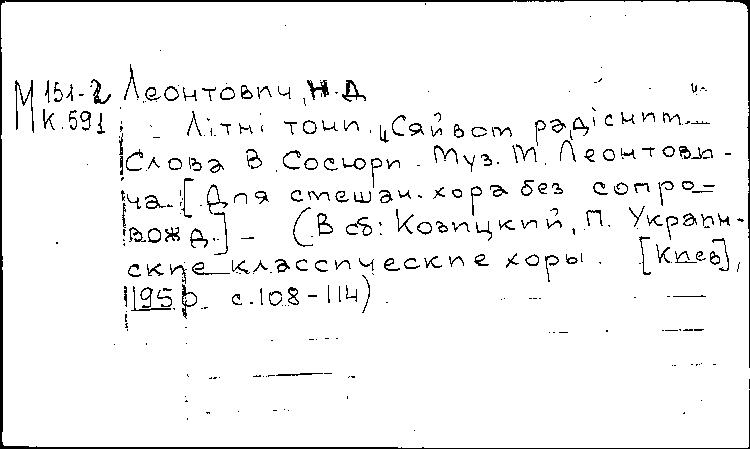 М 151-2 Леонтович, Н.Д
К.591
Літні тони. „Сяйвом радісним...“
Слова В. Сосюри. Муз. М. Леонтови-
ча. [Для смешан. хора без сопро-
вожд.] – (В сб: Козицкий, П. Украин-
ские классические хоры. [Киев],
1950. с.108-114).